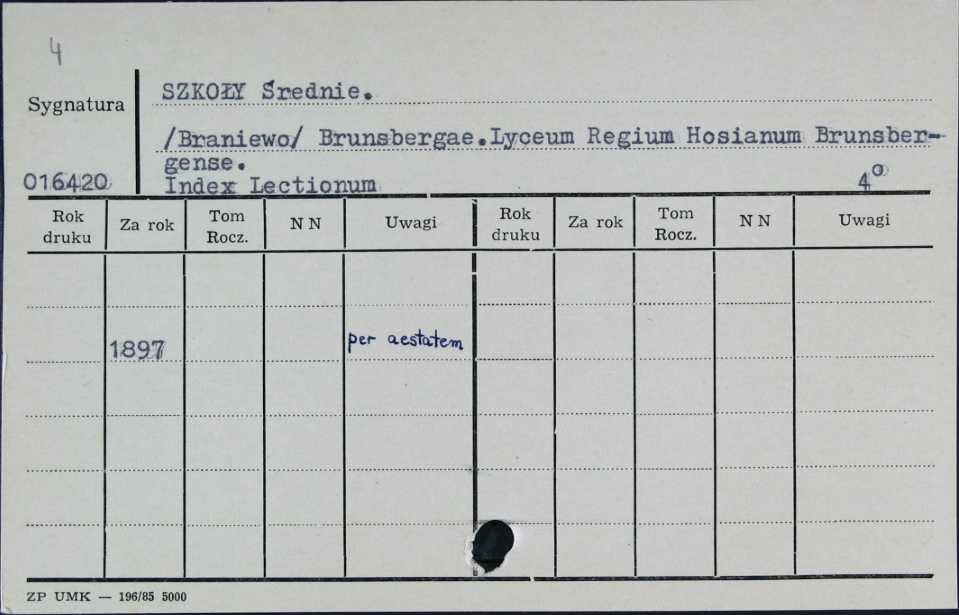 4
SZKOŁY Średnie.
Sygnatura
/Braniewo/ Brunsbergae.Lyceum Regium Hosianum Brunsber-
gense.
016420 Index Lectionum 4o
Rok druku Za rok Tom Rocz. N N Uwagi Rok druku Za rok Tom Rocz. N N Uwagi
1897 per aestatem
ZP UMK — 196/85 5000